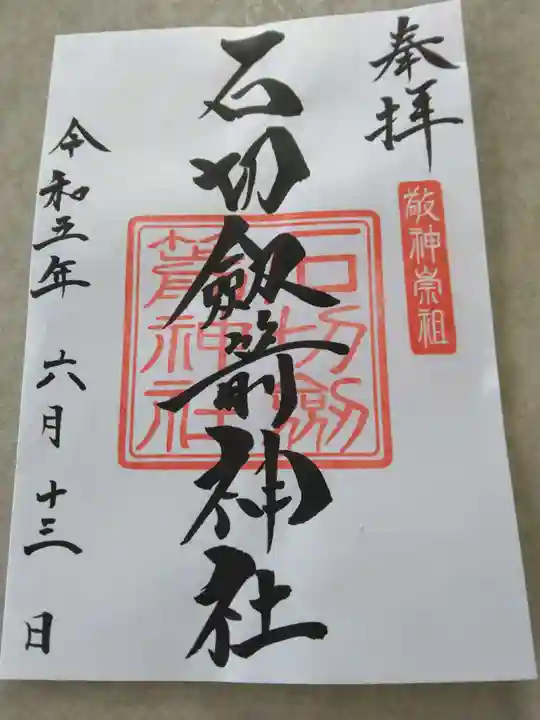 奉拝
敬神崇祖
石切劔箭神社
石切劔
箭神社
令和五年 六月十三日